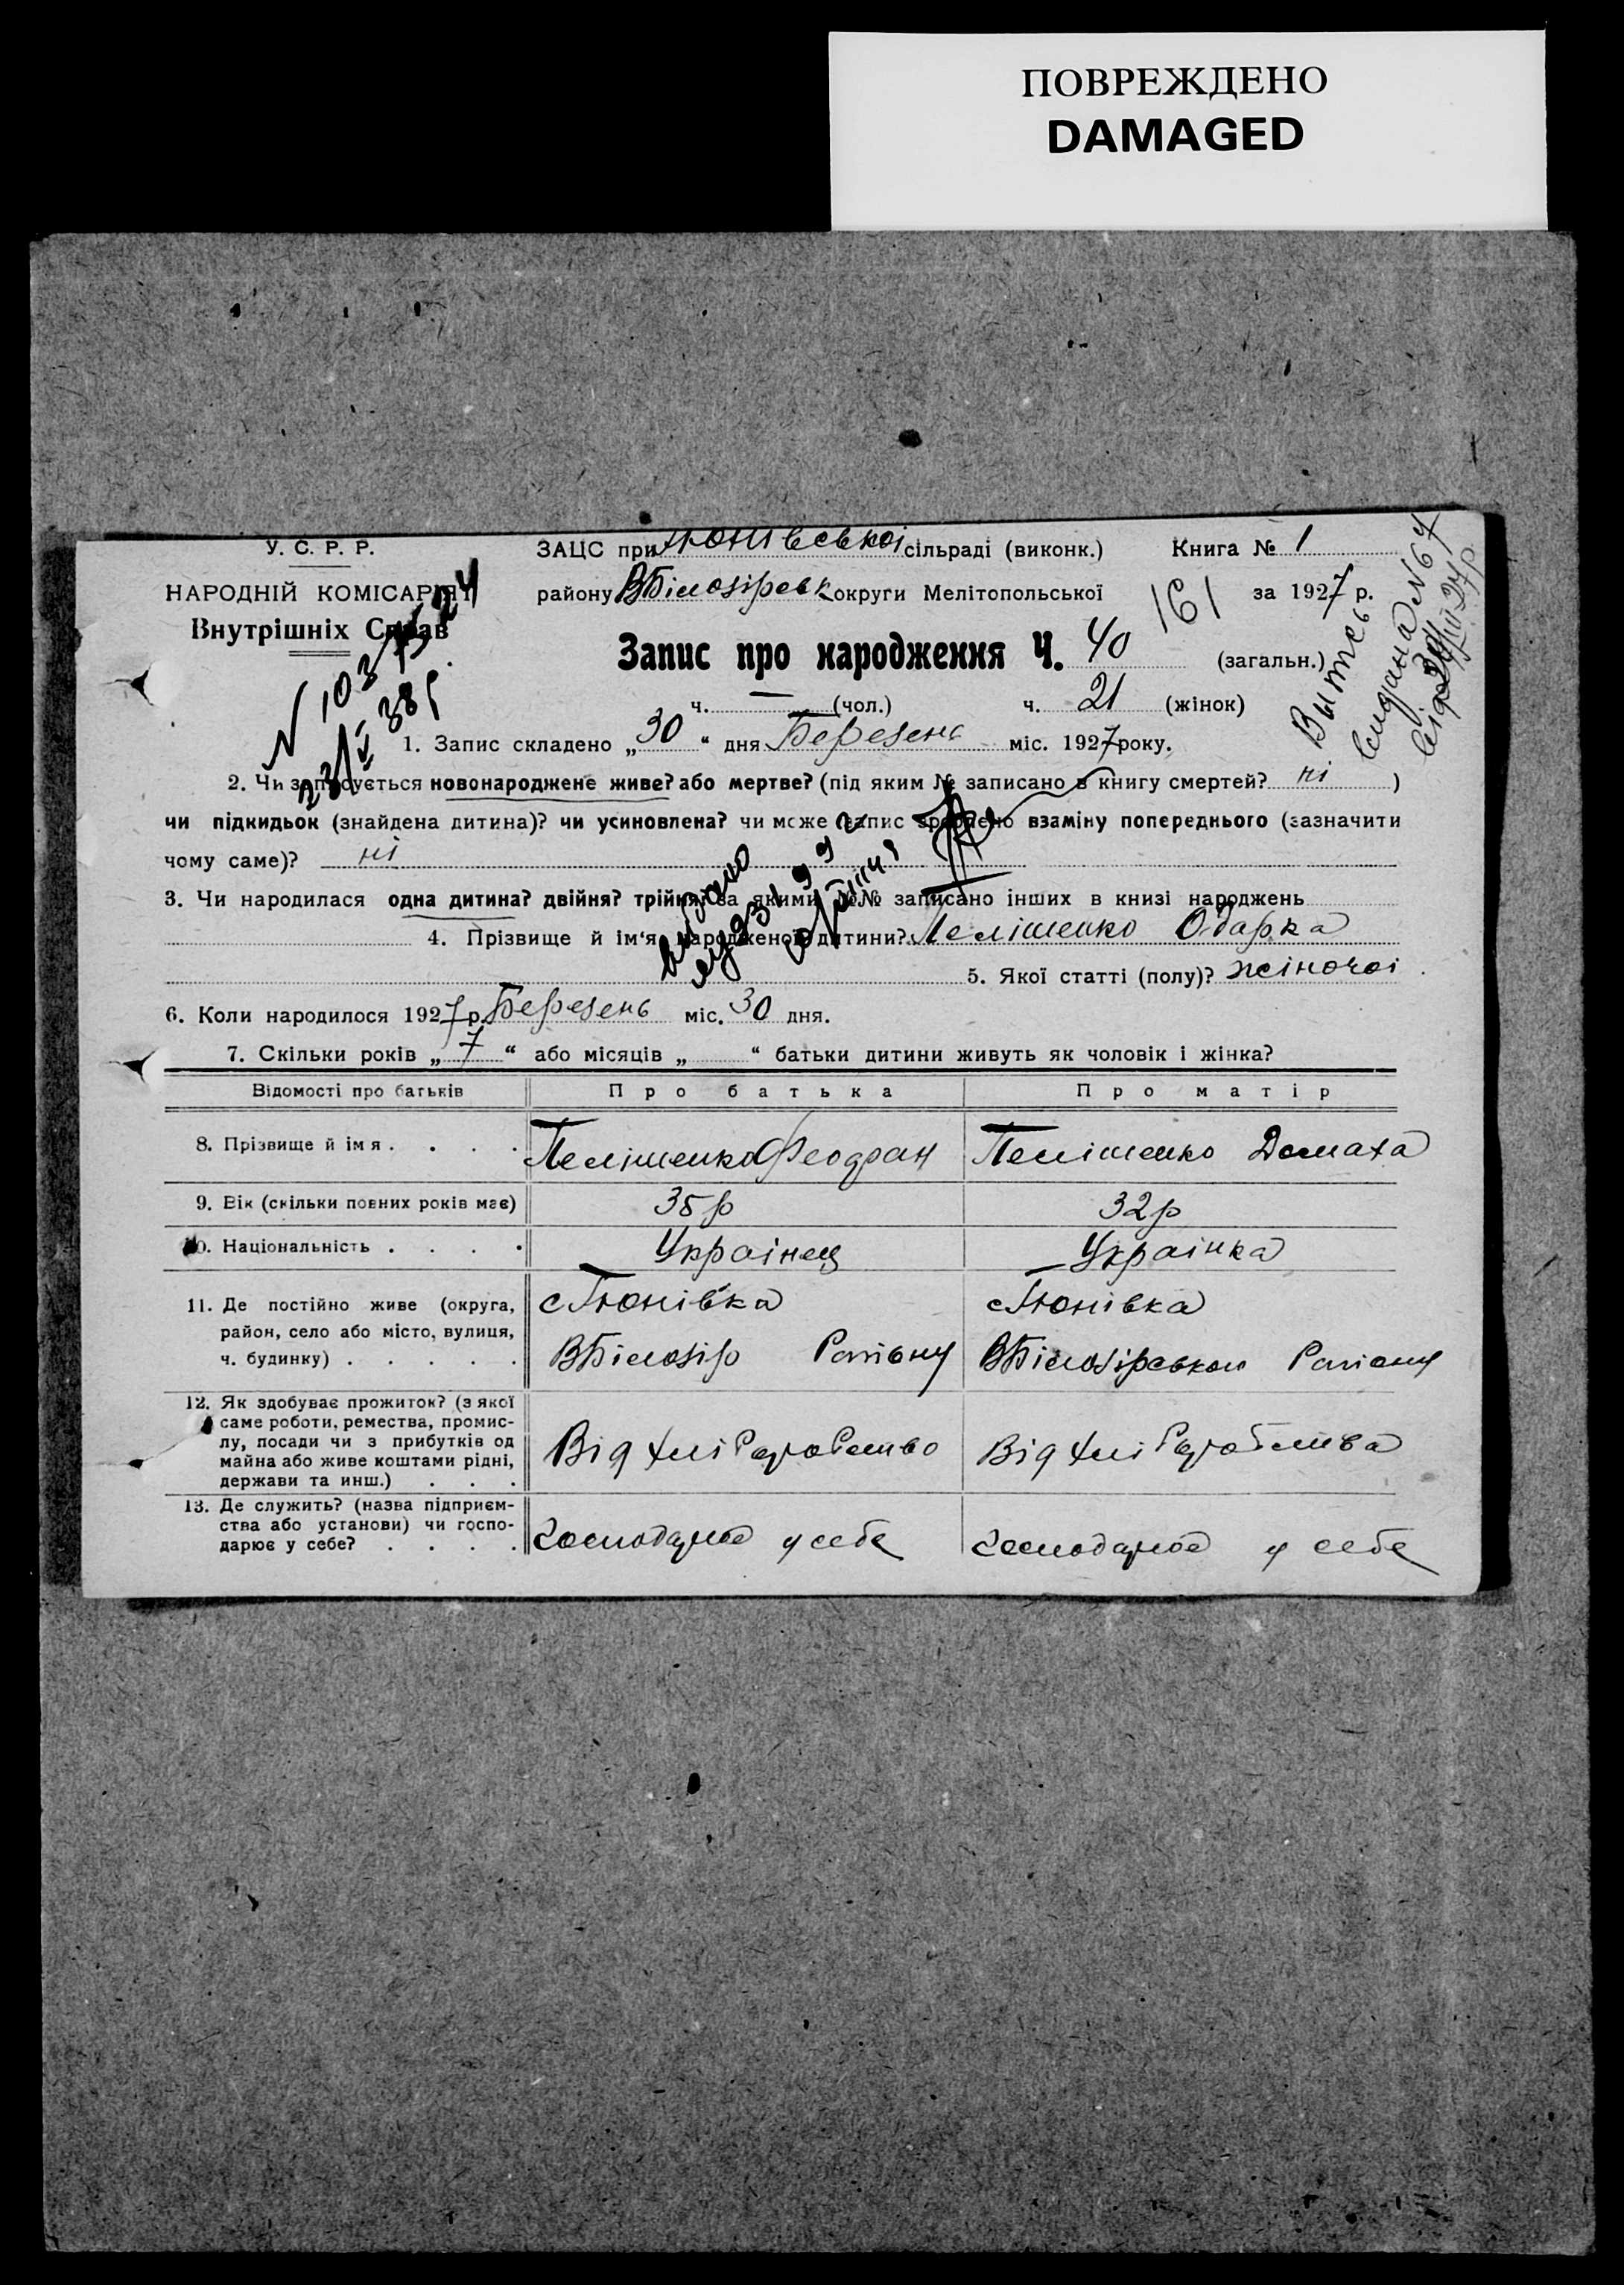 ПОВРЕЖДЕНО
DAMAGED
У. С. Р. Р.
НАРОДНІЙ КОМІСАРІЯТ
Внутрішніх Справ
ЗАЦС при Тюнівської сільраді (виконк.) Книга № 1
району ВБілозірськ округи Мелітопольської 161 за 1927 р.
Запис про народження Ч. 40 (загальн.)
ч. — (чол.) ч. 21 (жінок)
1. Запис складено „30“ дня Березень міс. 1927 року.
2. Чи записується новонароджене живе? або мертве? (під яким № записано в книгу смертей? ні)
чи підкидьок (знайдена дитина)? чи усиновлена? чи може запис зроблено взаміну попереднього (зазначити
чому саме)? ні
3. Чи народилася одна дитина? двійня? трійня? за якими №№ записано інших в книзі народжень
4. Прізвище й ім‘я народженої дитини? Пелішенко Одарка
5. Якої статті (полу)? жіночоі
6. Коли народилося 1927 р. Березень міс. 30 дня.
7. Скільки років „7“ або місяців „ “ батьки дитини живуть як чоловік і жінка?
Відомості про батьків Про батька Про матір
8. Прізвище й імя . . . . Пелішенко Феодран Пелішенко Домаха
9. Вік (скільки повних років має) 35р 32р
10. Національність . . . . Украінец Украінка
11. Де постійно живе (округа, с Тюнівка с Тюнівка
район, село або місто, вулиця,
ч. будинку) . . . . . ВБілозір Району ВБілозірського Району
12. Як здобуває прожиток? (з якої
саме роботи, ремества, промис-
лу, посади чи з прибутків од Від хліборобство Від хліборобства
майна або живе коштами рідні,
держави та инш.) . . .
13. Де служить? (назва підприєм-
ства або установи) чи госпо-
дарює у себе? . . . . Господарює у себе Господарює у себе
N 103
Вытись
видана N 67
видано